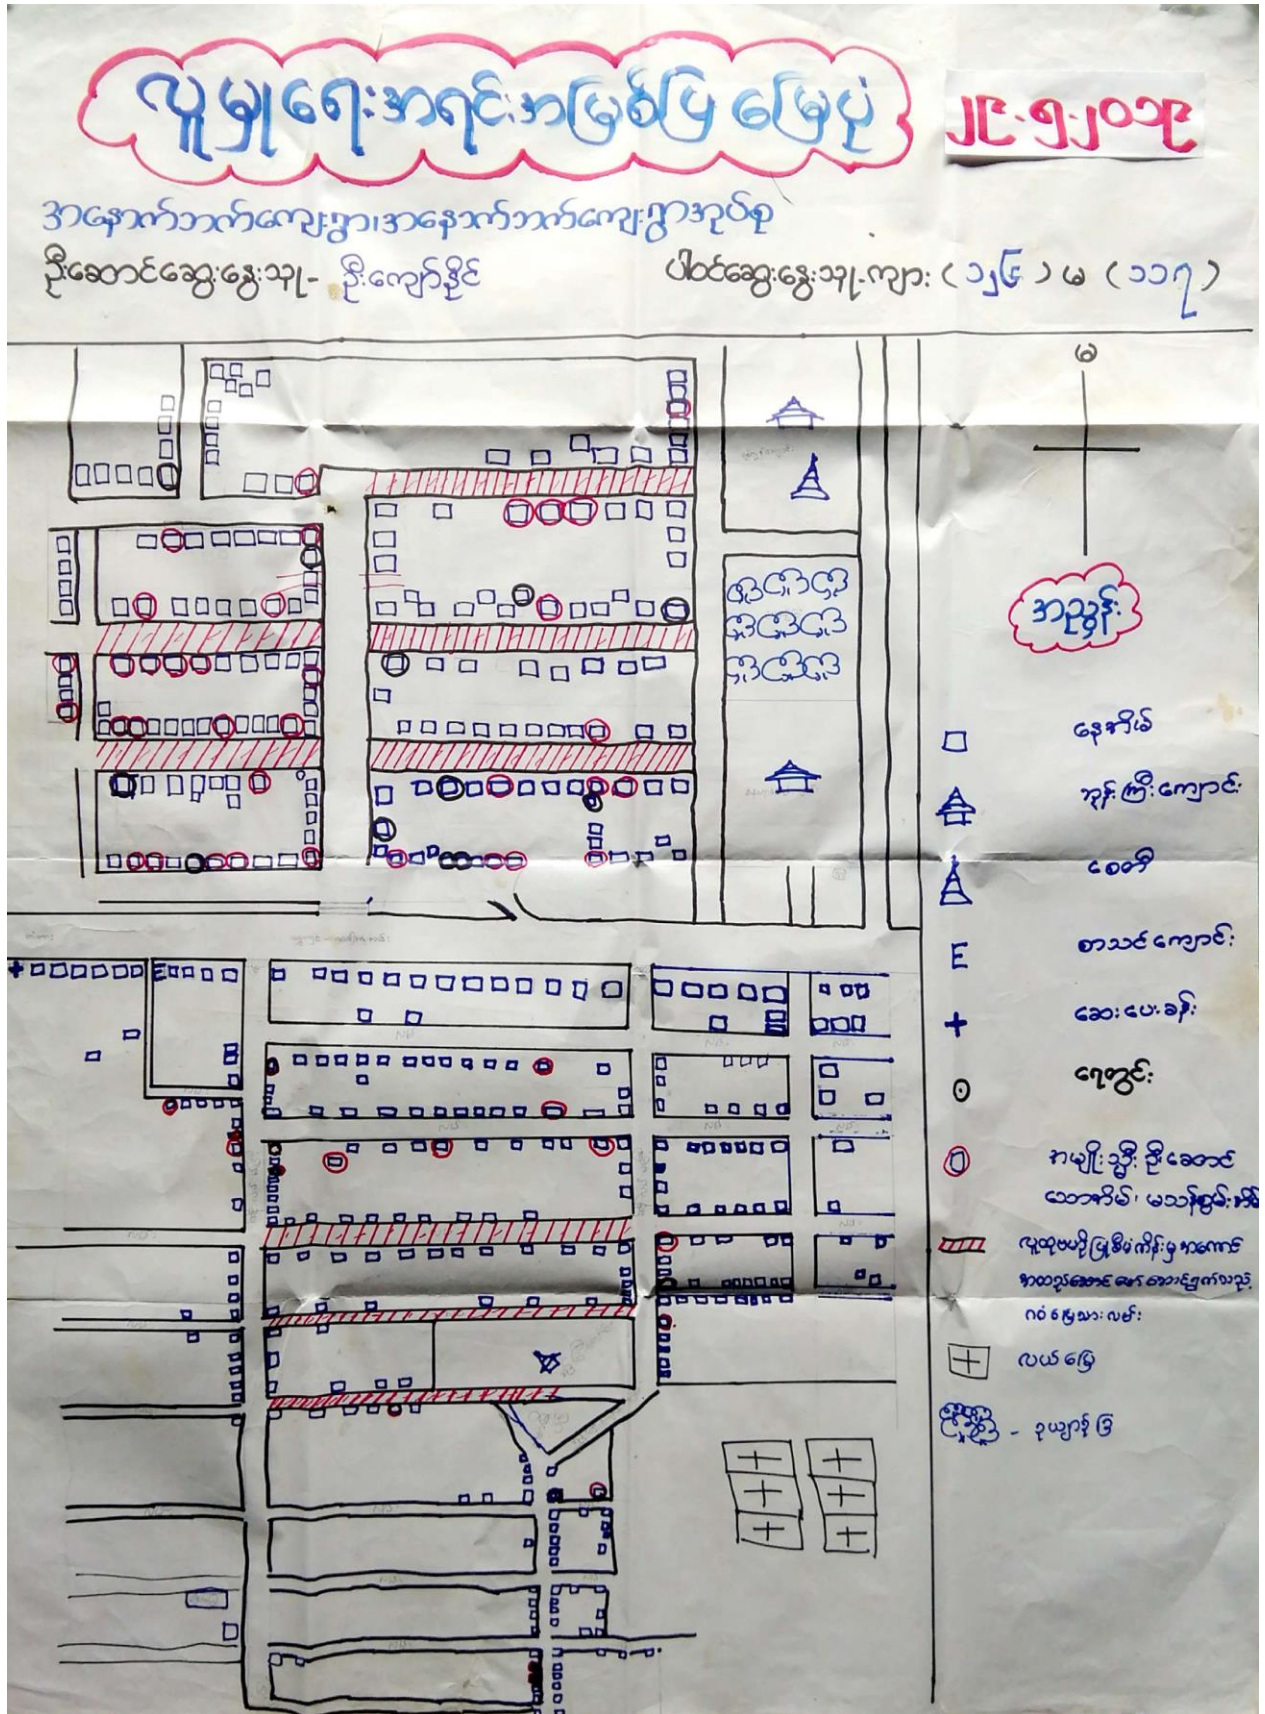 လူမှုရေးအရင်းအမြစ်ပြ မြေပုံ
၂၉.၅.၂၀၁၉
အနောက်ဘက်ကျေးရွာ၊အနောက်ဘက်ကျေးရွာအုပ်စု
ဦးဆောင်ဆွေးနွေးသူ- ဦးကျော်နိုင်
ပါဝင်ဆွေးနွေးသူ.ကျား (၁၂၆) မ (၁၁၇)
မ
အညွှန်း
နေအိမ်
ဘုန်းကြီးကျောင်း
စေတီ
E စာသင်ကျောင်း
ဆေးပေးခန်း
ရေတွင်း
အမျိုးသ္မီး ဦးဆောင်
သောအိမ်၊ မသန်စွမ်းအိမ်
လူထုဗဟိုပြုစီမံကိန်းမှ အကောင်
အထည်ဖော်ဆောင်ရွက်သည့်
ဂဝံမြေသားလမ်း
လယ်မြေ
- ဥယျာဉ်ခြံ
E